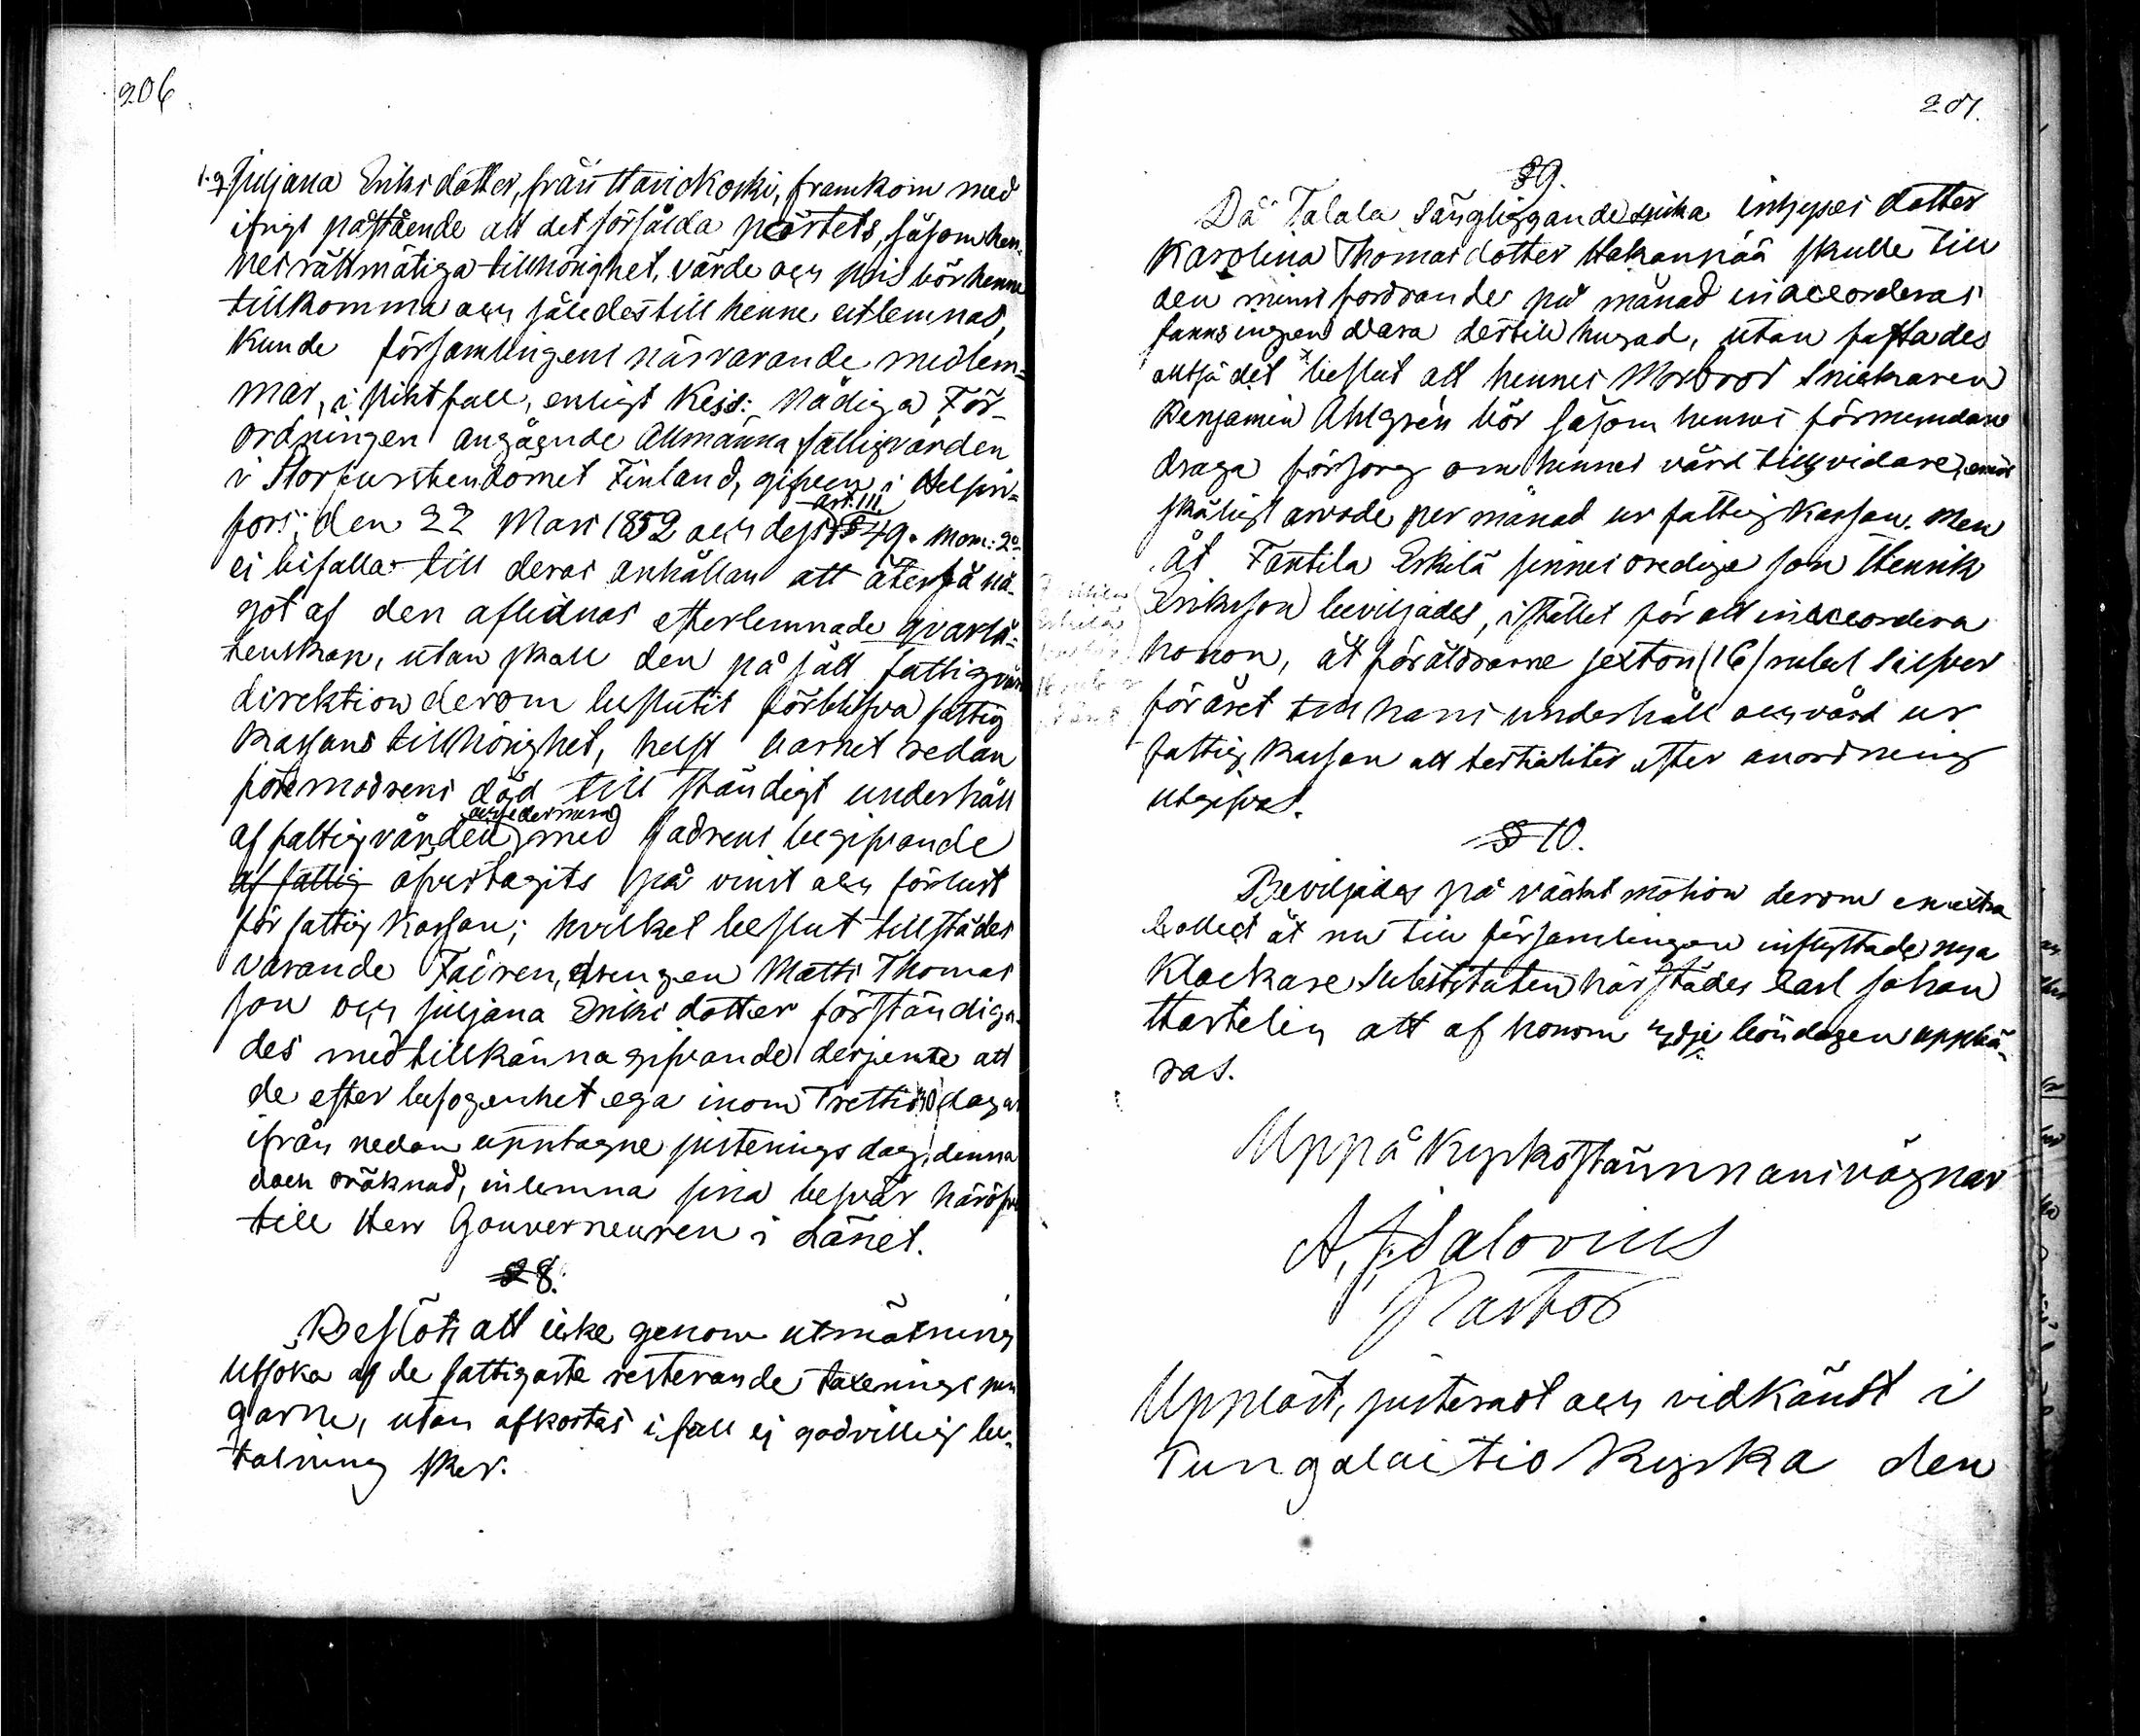 206
Juljana Eriksdotter, från Havickoski, framkom med
ifrigt påstående att det försålda pörtets, såsom hen-
nes rättmätiga tillhörighet, värde och pris bör henne
tillkomma och således till henne utlemnas,
Kunde församlingens närvarande medlem-
mar, i slikt fall, enligt Kejs: Nådiga För-
ordningen angående Allmänna fattigvården
i Storfurstendömet Finland, gifven i Helsin-
fors, den 22 Mars 1852 och dess Art. III. § 49. mom: 2o
ei bifalla till deras anhållan att återfå nå-
got af den aflidnas efterlemnade qvarlå-
tenskap, utan skall den på sätt fattigvårds
direktion derom beslutit förblifva fattig
Kassans tillhörighet, helst barnet redan
före modrens död till ständigt underhåll
af fattigvården med fadrens begifvande
af fattig öfvertagits på vinst och förlust
för fattig Kassan; hvilket beslut tillstädes
varande Fadren, drengen Matts Thomas
son och Juljana Eriksdotter förständiga-
des med tillkännagifvande derjemte att
de efter befogenhet ega inom Trettio (30) dagar
ifrån nedan upptagne justerings dag, denna
dock oräknad, inlemna sina besvär häröfver
till Herr Gouverneuren i Länet.
§ 8.
Beslöts att icke genom utmätning
utsöka af de fattigaste resterande taxerings pen
garne, utan afkortas i fall ej godvillig be-
talning sker.
207.
§ 9.
Då Talala sängliggande inhyses dotter
Karolina Thomasdotter Hakanpää skulle till
den minst fordrande per månad inaccorderas
fanns ingen vara dertill hugad, utan fastades
alltså det beslut att hennes Morbror Snickaren
Benjamin Ahlgrén bör såsom hennes förmyndare
draga försorg om hennes vård tillsvidare, emot
skäligt arvode per månad ur fattig Kassan. Men
åt Fantila Erkilä sinnes oredige son Henrik
Eriksson beviljades, istället för att inaccordera
honom, åt föräldrarne sexton (16) rubel Silfver
för året till hans underhåll och vård ur
fattig Kassan att tertialiter efter anordning
utgifvas.
§ 10.
Beviljades på väckt motion derom en extra
Collect åt nu till församlingen inflyttade nya
Klockare Substituten härstädes Carl Johan
Hartelin att af honom 3dje böndagen uppbä-
ras.
Uppå Kyrkostämmans vägnar
A. J. Salovius
Pastor
Uppläst, justeradt och vidkändt i
Tungalaitio Kyrka den